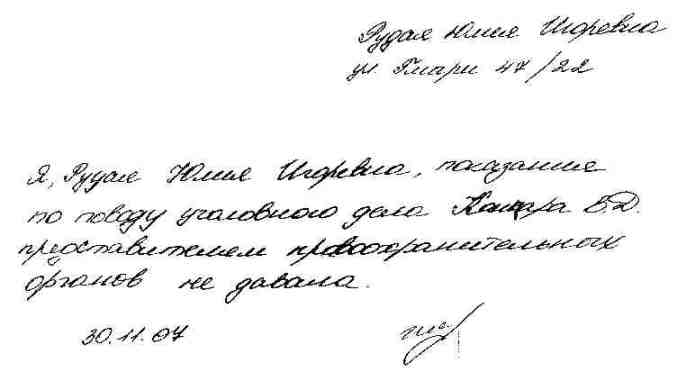 Рудая Юлия Игоревна
ул. 47/22
Я, Рудая Юлия Игоревна, показание
по поводу уголовного дела В.Д.
представителем правоохранительных
органов не давала.
30.11.07